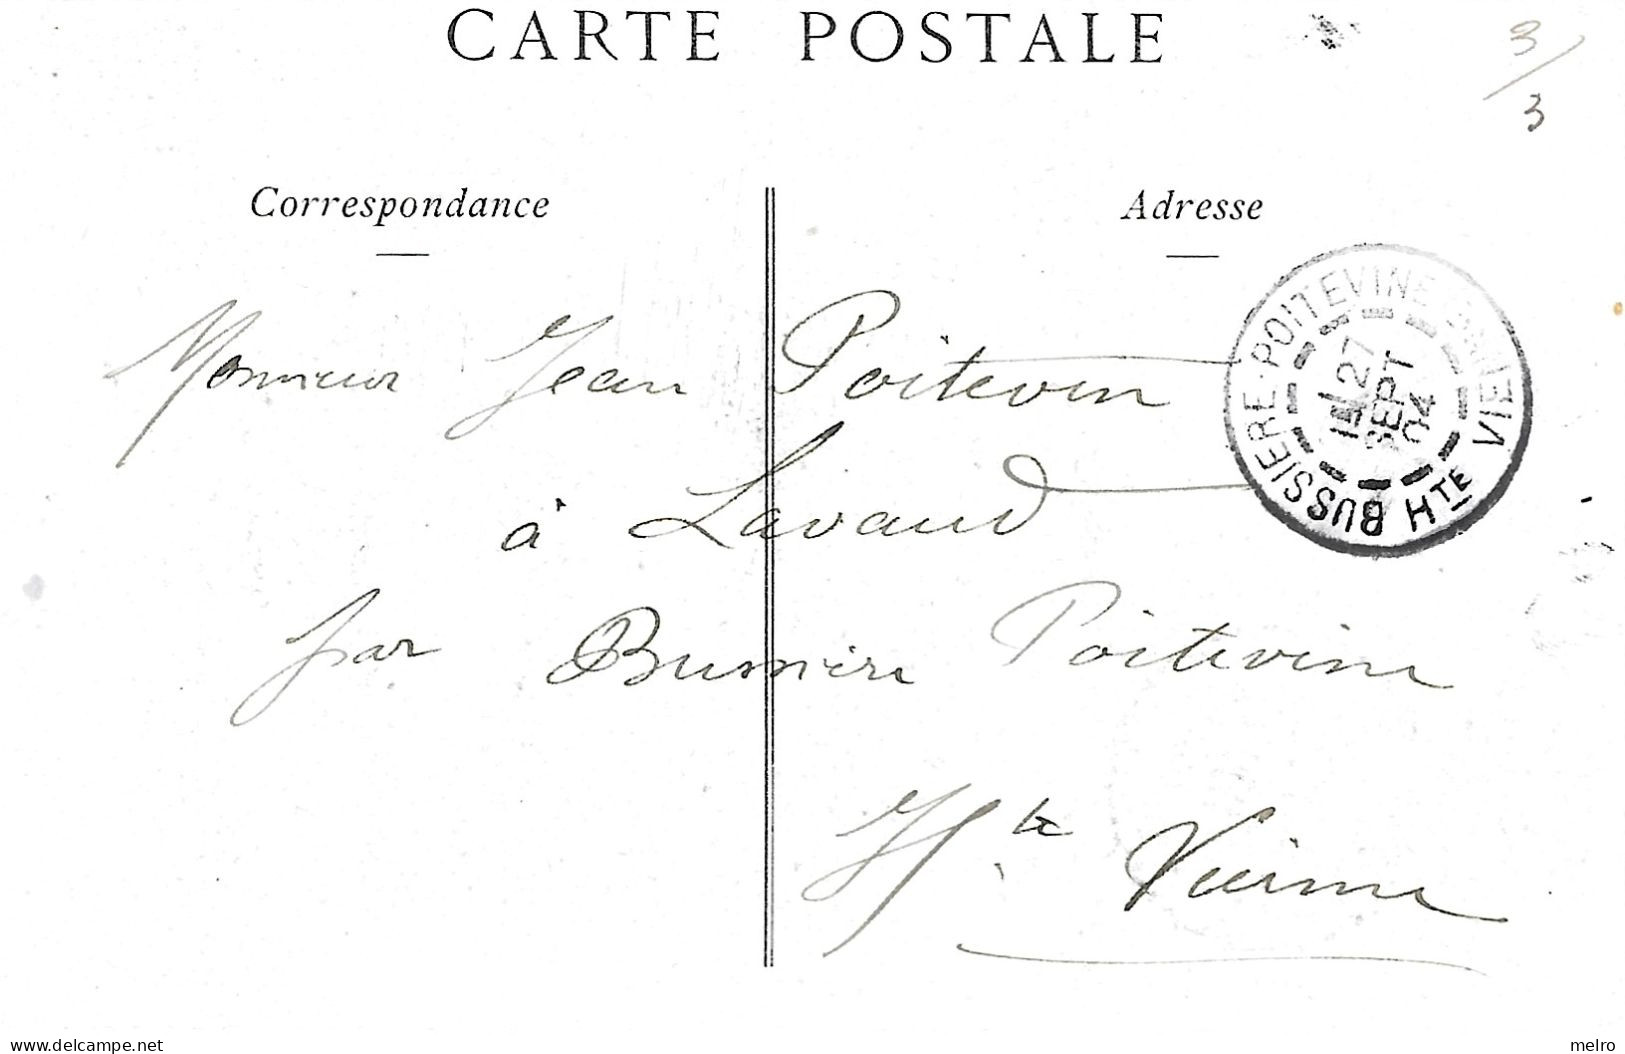 CARTE POSTALE
3/3
Correspondance
Adresse
Monsieur Jean Poitevin
à Lavaud
par Bussière Poitevine
Hte Vienne
BUSSIERE-POITEVINE HTE VIENNE
27
SEPT
04
www.delcampe.net
melro